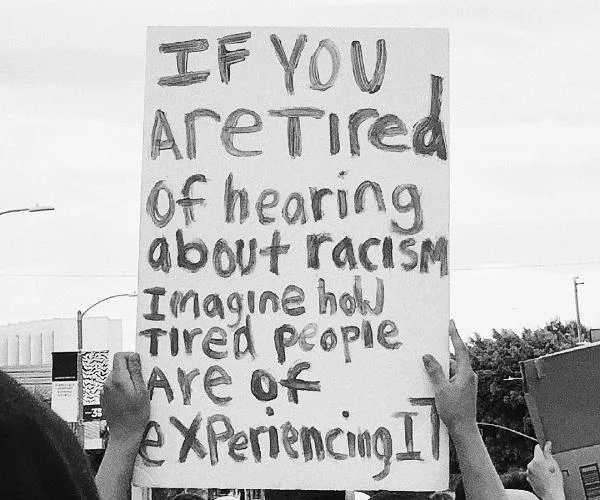 IF YOU
Are TIred
of hearing
about racISM
Imagine how
TIred people
Are of
eXPerIencing IT